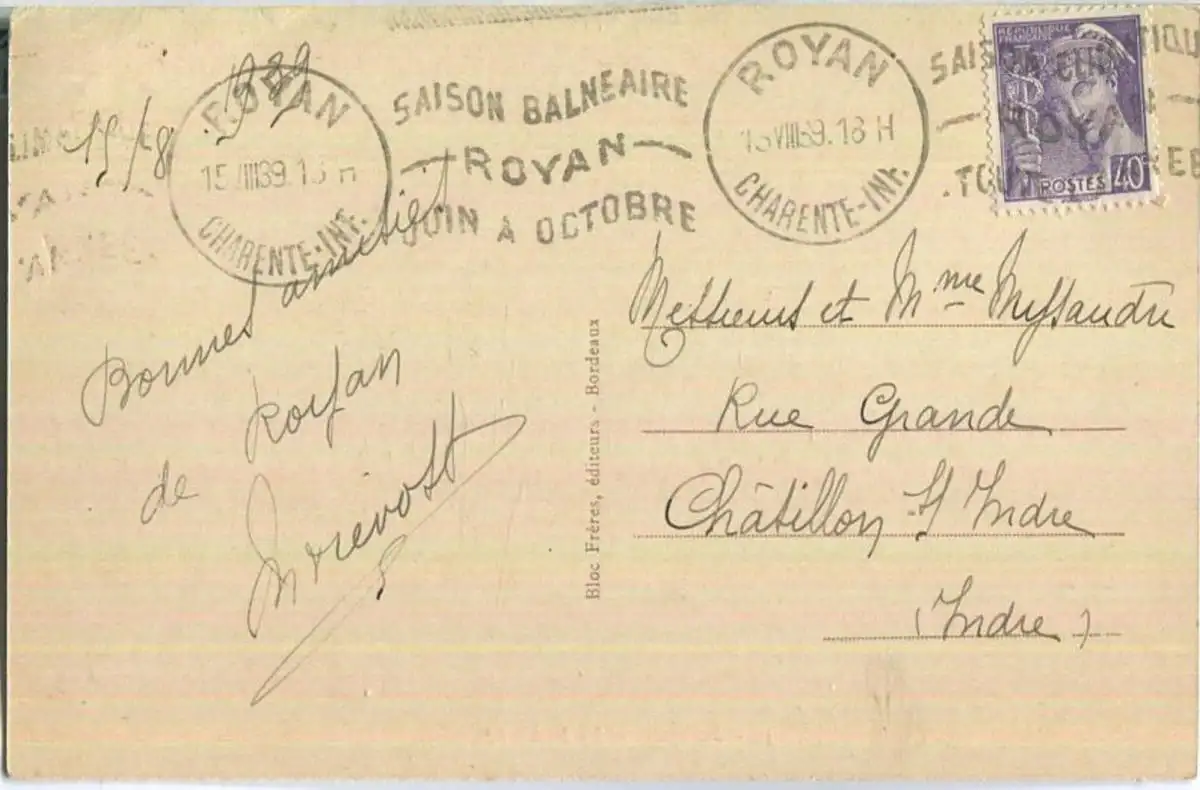 15/8 1939
ROYAN
15 VIII 39. 18 H
CHARENTE-INF.
SAISON BALNEAIRE
ROYAN
JUIN A OCTOBRE
ROYAN
15 VIII 39. 18 H
CHARENTE-INF.
REPUBLIQUE
FRANÇAISE
POSTES 40
Bonnes amitiés
de Royan
Bloc Frères, éditeurs - Bordeaux
Messieurs et Mme
Rue Grande
Châtillon S/ Indre
(Indre)